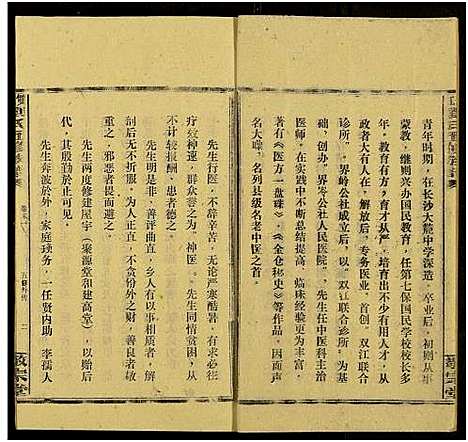 青年时期，在长沙大麓中学深造，卒业后，初则从事
蒙教，继则兴办国民教育，任第七保国民学校校长多
年，教育有方，育才从严，培育出不少有用人才，从
政者大有人在。解放后，专务医业，首创，双江联合
诊所，界岭公社成立后，以，双江联合诊所，为基
础，创办，界岑公社人民医院，。先生任中医科主治
医师，在实践中不断总结提高，临床经验更为丰富，
著有《医方一盘碟》、《金仓秘史》等作品，因而声
名大噪，名列县级名老中医之首。
先生行医，不辞辛苦，无论严寒酷暑，有求必应，
疗效神速，群众誉之为，神医，。先生同情贫困，从
不计较报酬，患者德之。
先生明是非，善评曲直，乡人有以事相质者，解
纷无不折服，为人正直，不贪份外之财，善良者敬
重之，邪恶者畏而避之。
先生两度修建屋宇（聚源堂和建高堂），以贻后
代，其殷勤於止可见，
先生奔波於外，家庭琐务，一任贤内助，李孺人
五修
敦宗堂